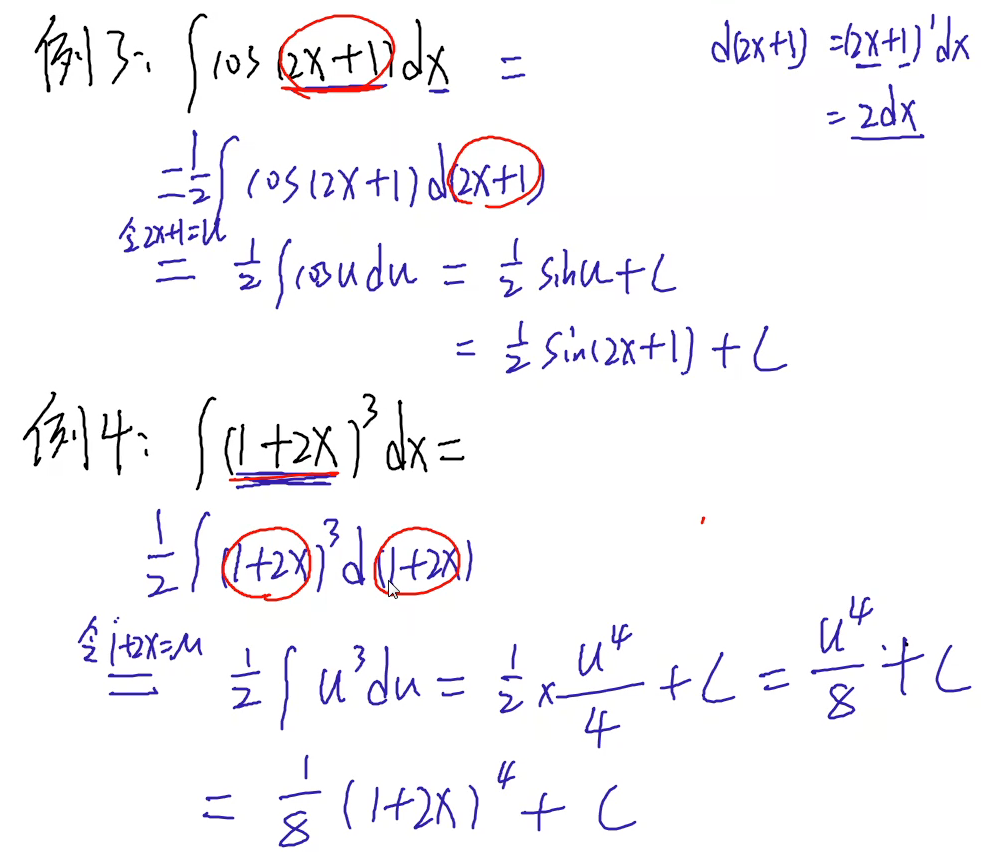 例3: ∫cos(2x+1)dx =
d(2x+1) =(2x+1)'dx
= 2dx
=1/2∫cos(2x+1)d(2x+1)
令2x+1=u
= 1/2∫cosudu = 1/2 sinu+C
= 1/2 sin(2x+1)+C
例4: ∫(1+2x)³dx=
1/2∫(1+2x)³d(1+2x)
令1+2x=u
= 1/2∫u³du = 1/2×u⁴/4+C = u⁴/8+C
= 1/8(1+2x)⁴+C